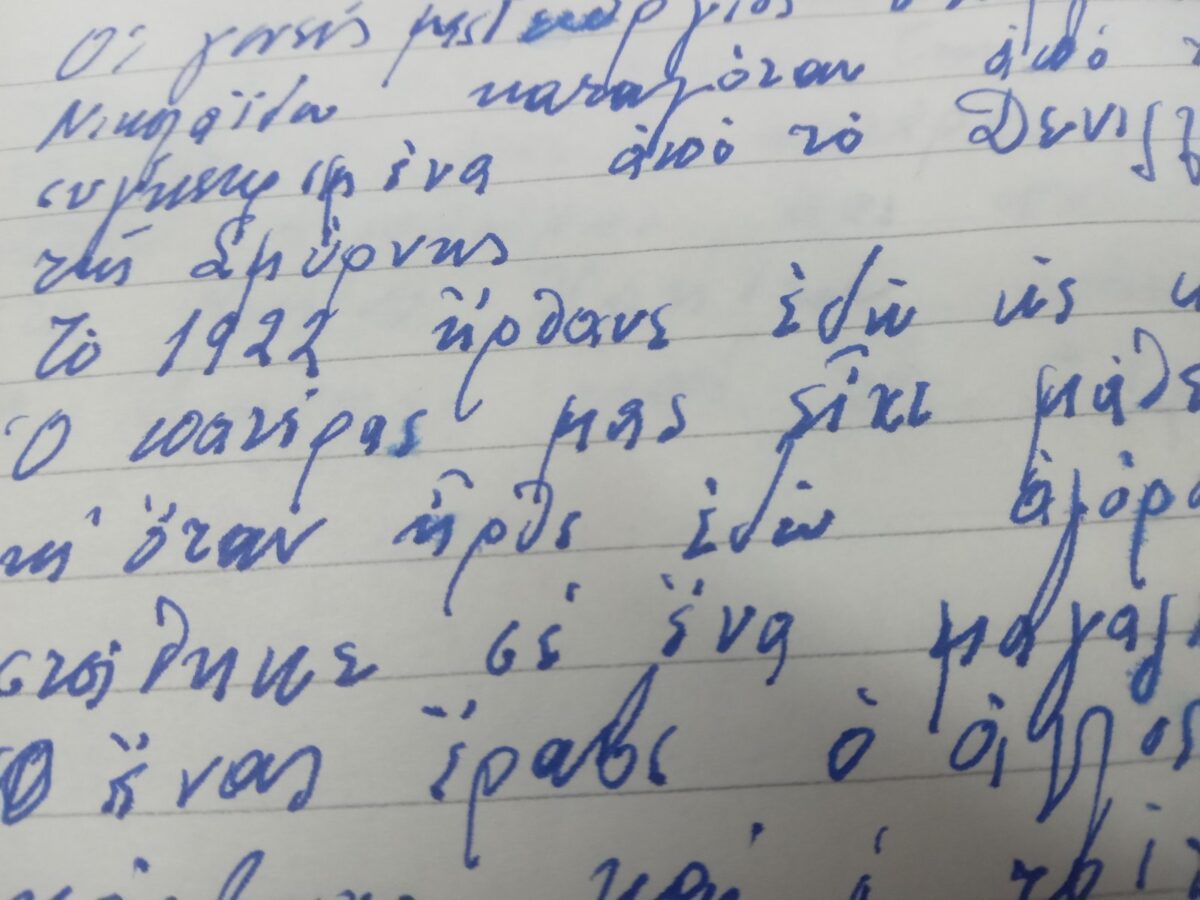 Οἱ γονείς μας
Νικολαΐδου καταγόταν ἀπό
συγκεκριμένα ἀπό τό Δενιζ
τῆς Σμύρνης
Τό 1922 ἦρθανε ἐδῶ
Ὁ πατέρας μας εἶχε μάθε
ὅταν ἦρθε ἐδῶ ἀγόρα
στάθηκε σέ ἕνα μαγαζ
Ὁ ἕνας ἔραβε ὁ ἄλλος
καί